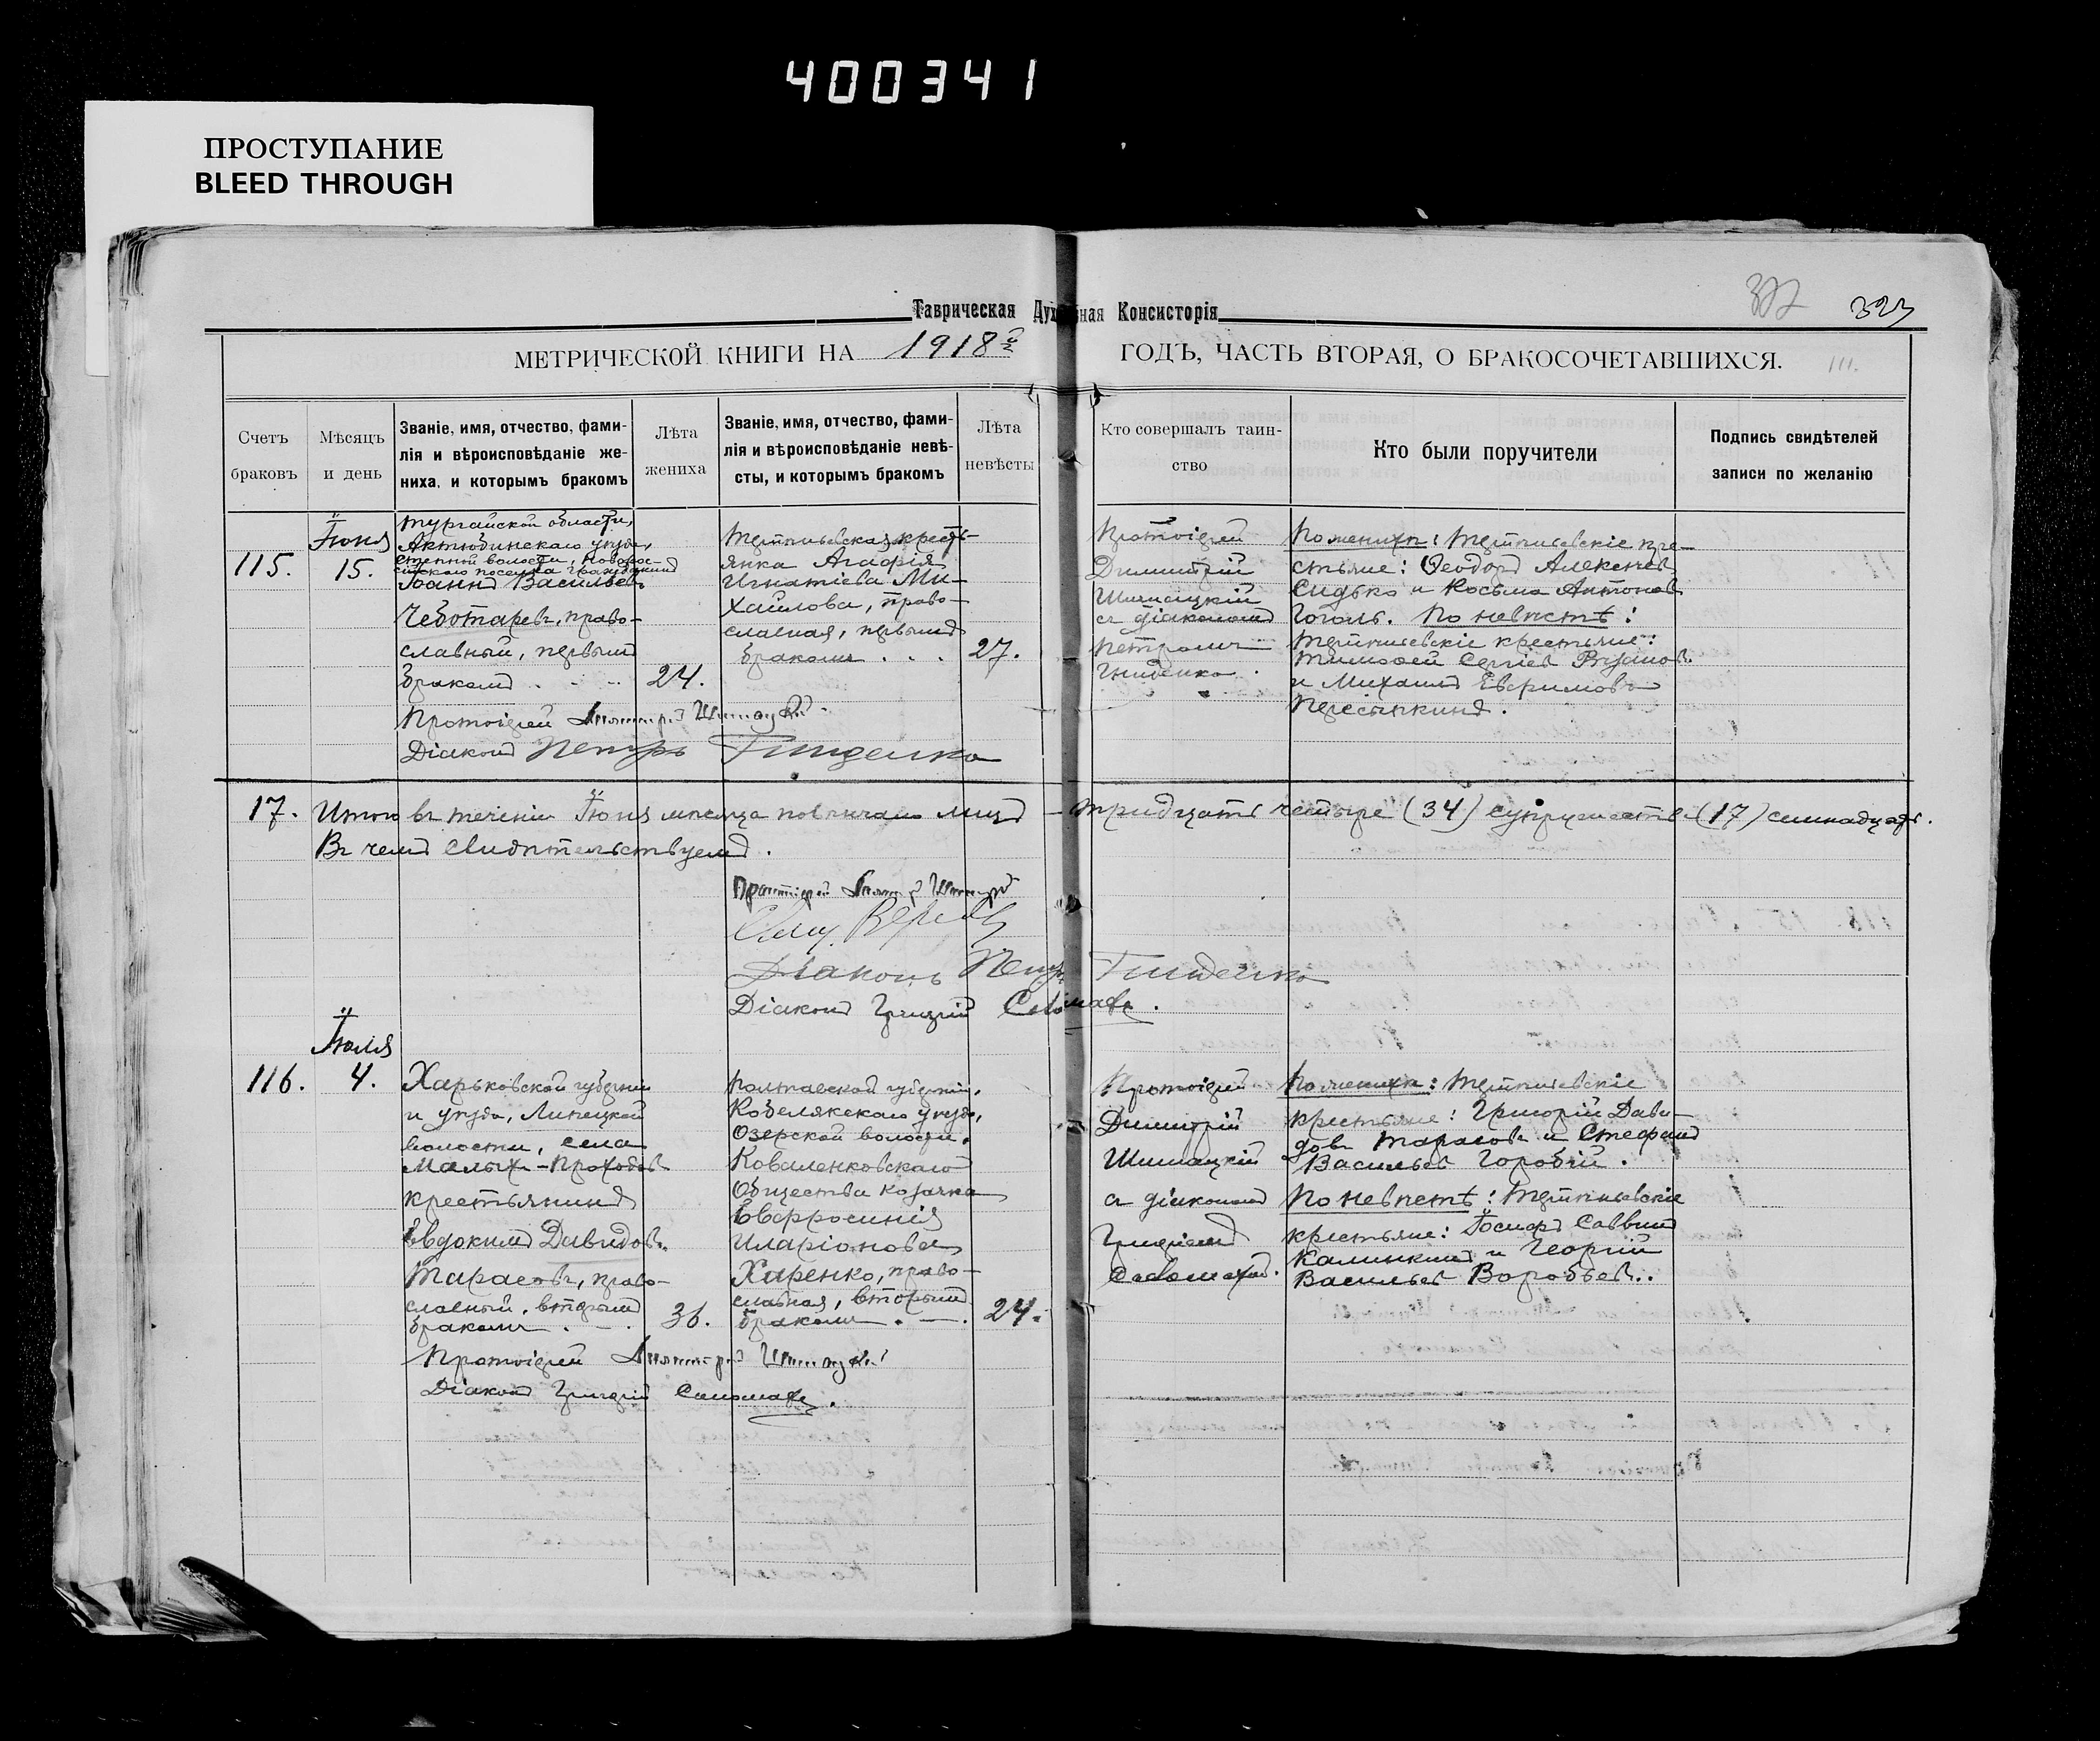 400341
ПРОСТУПАНИЕ
BLEED THROUGH
323
Таврическая Духовная Консисторія
МЕТРИЧЕСКОЙ КНИГИ НА 1918й ГОДЪ, ЧАСТЬ ВТОРАЯ, О БРАКОСОЧЕТАВШИХСЯ.
111.
Счетъ
браковъ
Мѣсяцъ
и день
Званіе, имя, отчество, фами-
лія и вѣроисповѣданіе же-
ниха, и которымъ бракомъ
Лѣта
жениха
Званіе, имя, отчество, фами-
лія и вѣроисповѣданіе невѣ-
сты, и которымъ бракомъ
Лѣта
невѣсты
Кто совершалъ таин-
ство
Кто были поручители
Подпись свидѣтелей
записи по желанію
115.
Іюня
15.
Тургайской области,
Актюбинскаго уѣзда,
Степной волости, Новорос-
сійскаго поселка гражданинъ
Іоаннъ Васильевъ
Чеботаревъ, право-
славный, первымъ
бракомъ . - -
24.
кресть-
янка Агафія
Игнатіева Ми-
хайлова, право-
славная, первымъ
бракомъ . . .
27.
Протоіерей
Димитрій
Шимацкій
съ діакономъ
Петромъ
Гниденко.
По женихѣ: кре-
стьяне: Ѳеодоръ Алексѣевъ
Сидько и Косьма Антоновъ
Гоголь. По невѣстѣ:
крестьяне:
Тимоѳей Сергіевъ
и Михаилъ Евфимовъ
Пересыпкинъ.
Протоіерей Димитрій Шимацкій.
Діаконъ Петръ Гниденко
17. Итого въ теченіи Іюня мѣсяца повѣнчано лицъ - тридцать четыре (34) супружествъ (17) семнадцать.
Въ чемъ свидѣтельствуемъ.
Протоіерей Димитрій Шимацкій
Свящ.
Діаконъ Петръ Гниденко
Діаконъ Григорій Саломаха.
Іюля
116.
4.
Харьковской губерніи
и уѣзда, Липецкой
волости, села
Малыхъ-Проходовъ
крестьянинъ
Евдокимъ Давидовъ
Тарасовъ, право-
славный, вторымъ
бракомъ . - .
Полтавской губерніи,
Кобелякскаго уѣзда,
Озерской волости,
Коваленковскаго
Общества козачка
Евфросинія
Иларіонова
Харенко, право-
славная, вторымъ
бракомъ . - .
24.
Протоіерей
Димитрій
Шимацкій
съ діакономъ
Григоріемъ
Саломахой.
По женихѣ:
крестьяне: Григорій Дави-
довъ Тарасовъ и Стефанъ
Васильевъ Горобій.
По невѣстѣ:
крестьяне: Іосифъ Саввинъ
Калинкинъ и Георгій
Васильевъ Воробьевъ.
Протоіерей Димитрій Шимацкій
Діаконъ Григорій Саломаха.